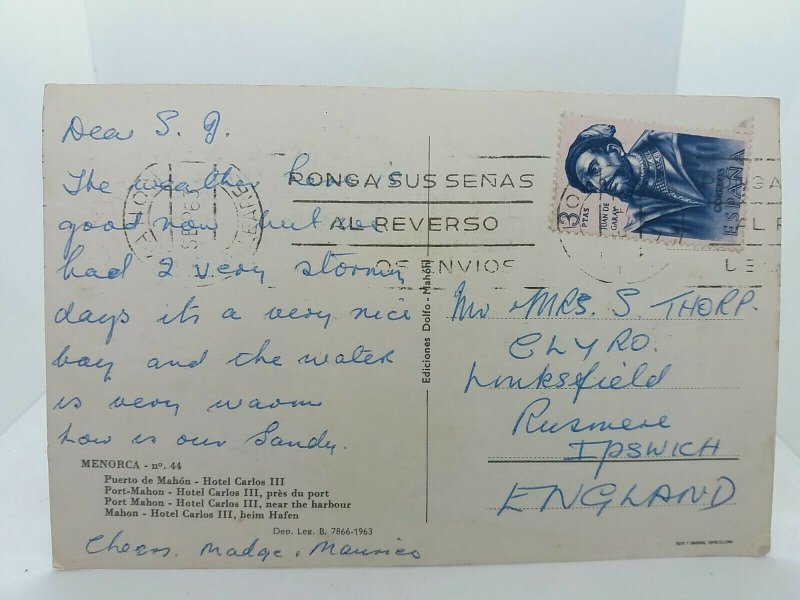 Dear S. J.
The weather here is
good now but we
had 2 very stormy
days its a very nice
bay and the water
is very warm
how is our Sandy.
MENORCA - nº. 44
Puerto de Mahón - Hotel Carlos III
Port-Mahon - Hotel Carlos III, près du port
Port Mahon - Hotel Carlos III, near the harbour
Mahon - Hotel Carlos III, beim Hafen
Dep. Leg. B. 7866-1963
Cheers. Madge. Maurice
Ediciones Dolfo - Mahón
PONGA SUS SEÑAS
AL REVERSO
OS ENVIOS
3 PTAS
JUAN DE GARAY
CORREOS
ESPAÑA
GA
AL R
LE
Mr MRS. S. THORP.
CLYRO.
Linksfield
Rusmere
IPSWICH
ENGLAND